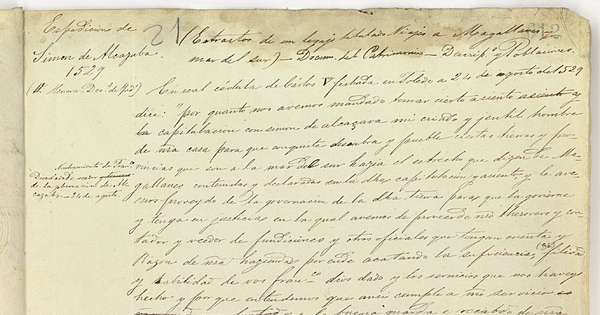 Espedicion de
Simon de Alcazaba.
1529
21
(Extractos de un legajo titulado Viajes a Magallanes y
mar del Sur) — Docum. del Patrimonio — Descrip. y Poblaciones.
En real cédula de Cárlos V fechada en Toledo a 24 de agosto del 1529
dice: "por quanto nos avemos mandado tomar cierto asiento y
capitulacion con simon de alcazava mi criado y gentil hombre
de nra casa para que conquiste descubra y pueble ciertas tierras y pro-
vincias que son a la mar del sur hazia el estrecho que dizen de Ma-
gallanes contenidas y declaradas en la dha capitulacion y asiento y le ave-
mos proveydo de la governacion de la dha tierra para que la govierne
y tenga en justicia en la qual avemos de proveer de nro thesorero y con-
tador y veedor de fundiciones y otros oficiales que tengan cuenta y
Razon de nra hazienda por ende acatando la suficiencia (sic) fidelidad
y habilidad de vos fran.co dios dado y los servicios que nos haveys
hecho y por que entendemos que ansi cumple a nro servicio es
Nombramiento de Fran.co
Diosdado de veedor
24 de agosto